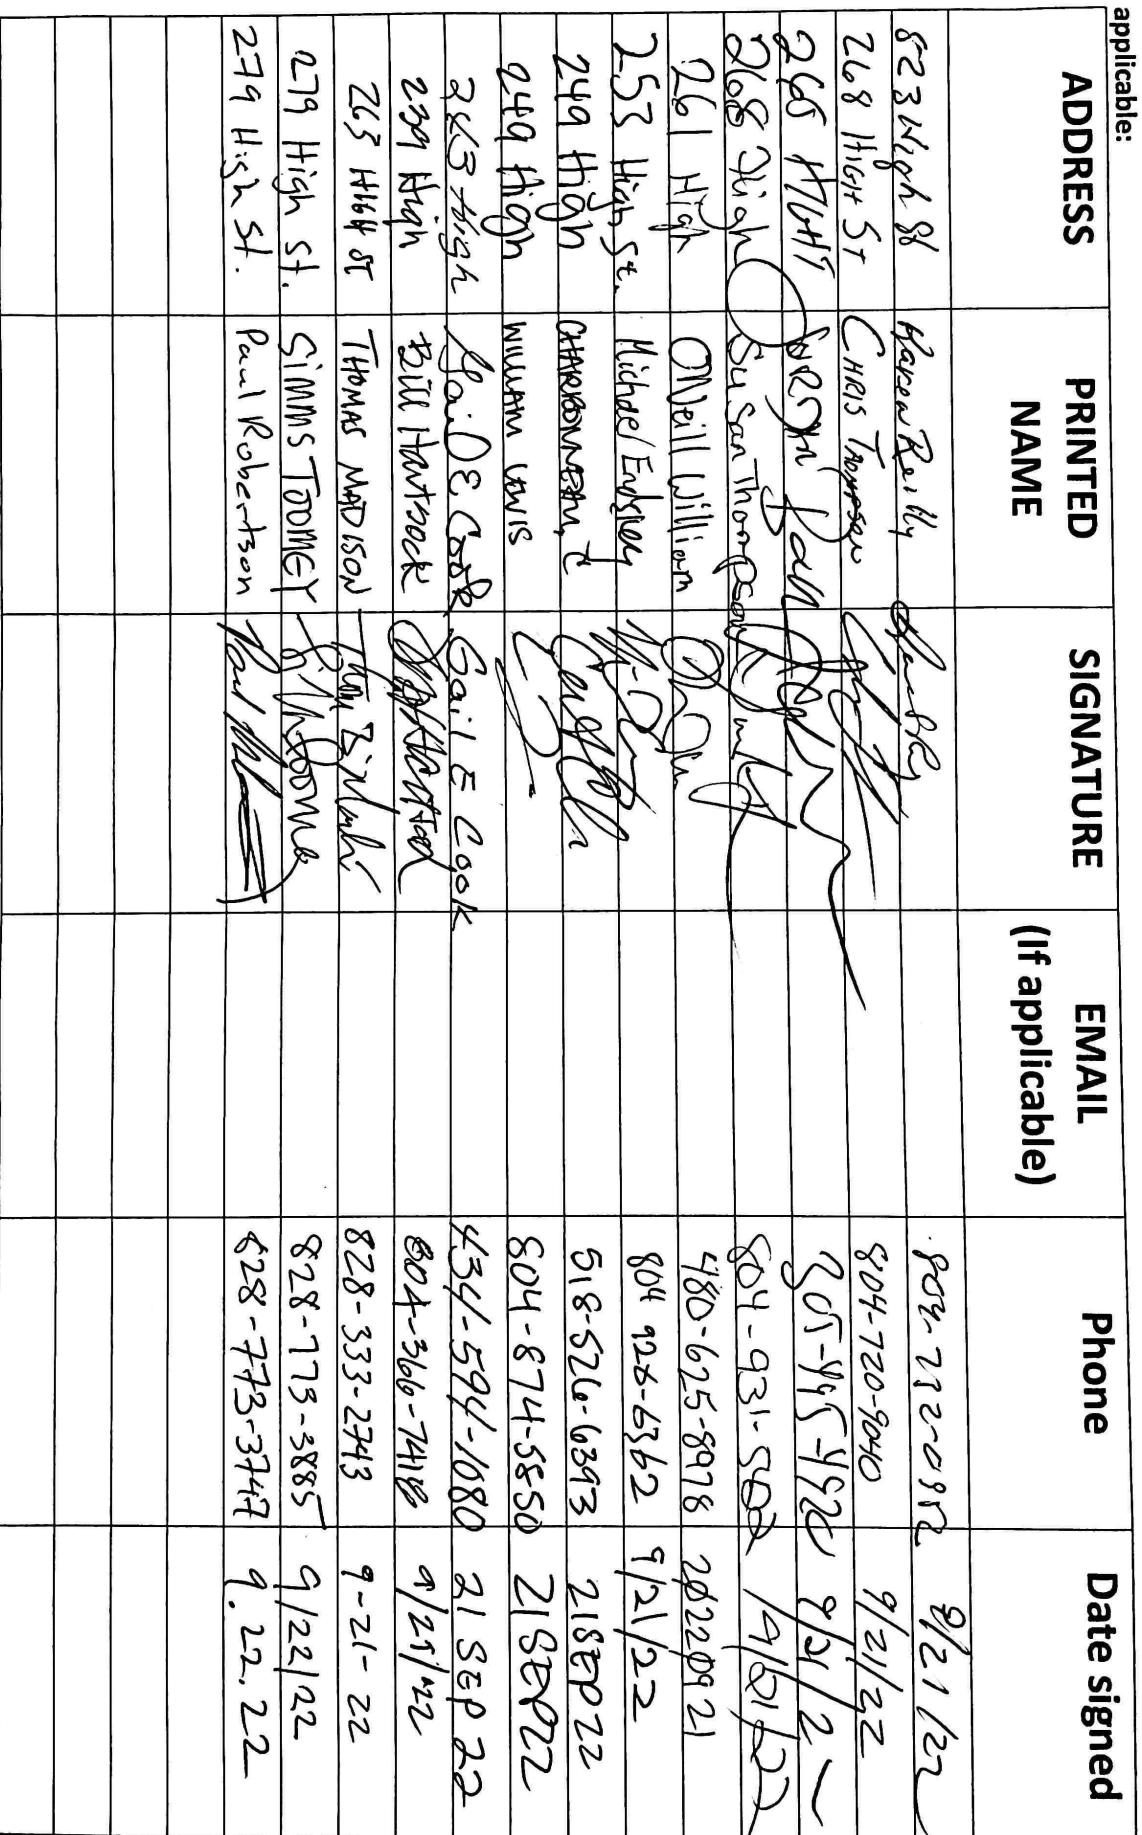 applicable:
ADDRESS PRINTED NAME SIGNATURE EMAIL (If applicable) Phone Date signed
823 High St Karen Reilly 804-732-0952 9/21/22
268 HIGH ST CHRIS THOMPSON 804-720-9040 9/21/22
265 HIGH 9/21/2
268 High Susan Thompson 804-931- 9/21/22
261 High ONeill William 480-625-8978 20220921
253 High St. Michael Endsley 804 926-6362 9/21/22
249 High CHARBONNEAU, C 518-526-6393 21SEP22
249 High WILLIAM LEWIS 804-874-5850 21SEP22
243 High Gail E Cook Gail E Cook 434-594-1080 21 SEP 22
239 High Bill Hartsock 804-366-7418 9/21/22
263 HIGH ST THOMAS MADISON 828-333-2743 9-21-22
279 High St. SIMMS TOOMEY 828-773-3885 9/22/22
279 High St. Paul Robertson 828-773-3747 9.22.22